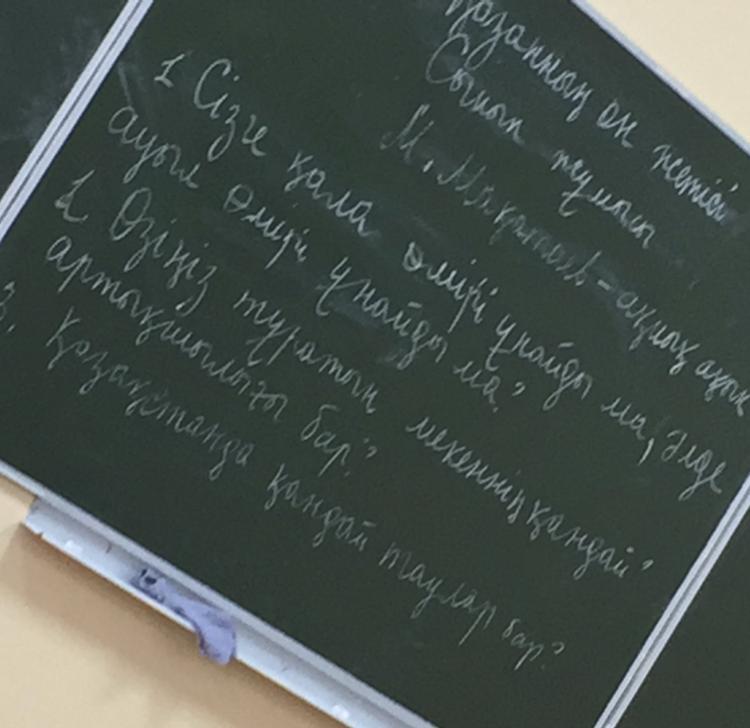 Қазанның он жетісі
Сынып жұмысы
М. Мақатаев - ақиық ақын
1 Сізге қала өмірі ұнайды ма, әлде
ауыл өмірі ұнайды ма?
2 Өзіңіз тұратын мекеннің қандай
артықшылығы бар?
3. Қазақстанда қандай таулар бар?